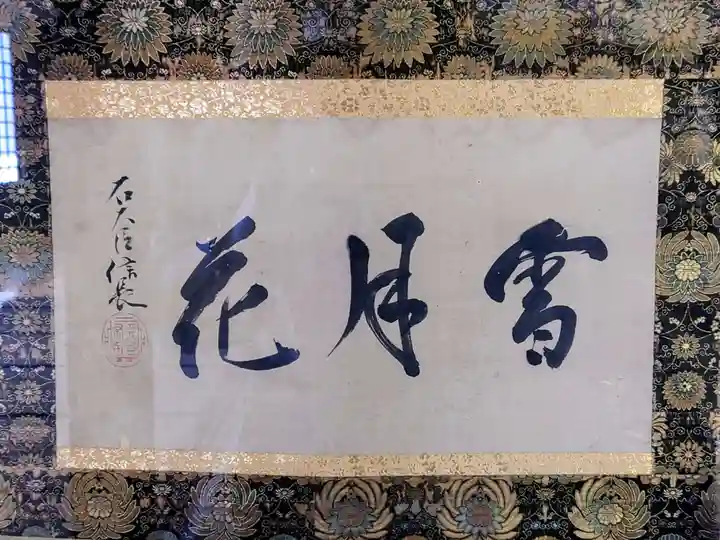 雪月花
右大臣信長